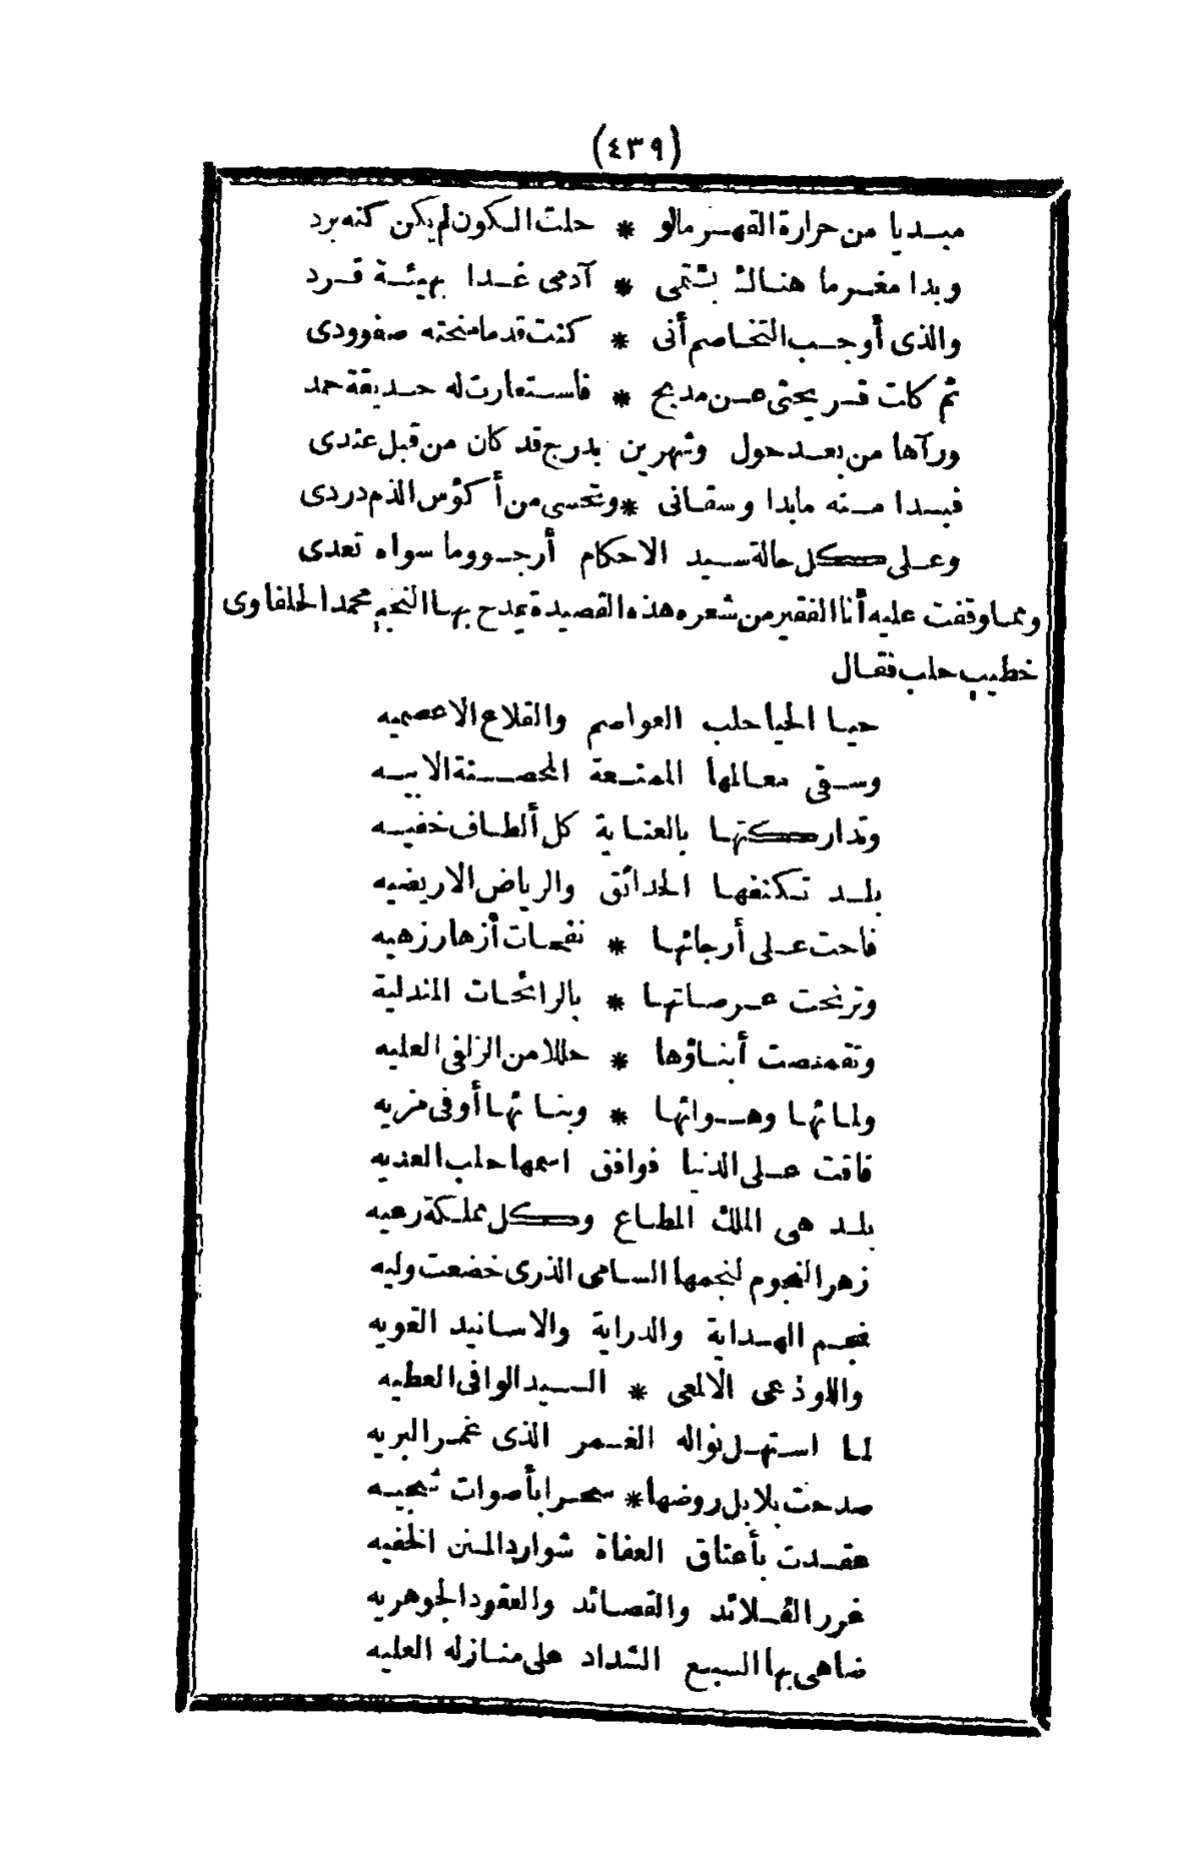 (٤٣٩)
مبديا من حرارة القهر مالو * حلت الكون لم يكن كنه برد
وبدا مغرما هناك بشتمى * آدمى غدا بهيئة قرد
والذى أوجب التخاصم أنى * كنت قدما منحته صفو ودى
ثم كانت قريحتى عن مديح * فاستعارت له حديقة حمد
ورآها من بعد حول وشهرين بدرج قد كان من قبل عندى
فبدا منه مابدا وسقانى * وتحسى من أكؤس الذم دردى
وعلى كل حالة سيد الاحكام أرجو وما سواه تعدى
ومما وقفت عليه أنا الفقير من شعره هذه القصيدة يمدح بها النجم محمد الحلفاوى
خطيب حلب فقال
حيا الحيا حلب العواصم والقلاع الاعصميه
وسقى معالمها الممنعة المحصنة الابيه
وتداركتها بالعناية كل ألطاف خفيه
بلد تكنفها الحدائق والرياض الاريضيه
فاحت على أرجائها * نفحات أزهار زهيه
وترنحت عرصاتها * بالرائحات المندلية
وتقمصت أبناؤها * حللا من الزلفى العليه
ولمائها وهوائها * وبنائها أوفى مزيه
فاقت على الدنيا فوافق اسمها حلب العذيه
بلد هى الملك المطاع وكل مملكة رعيه
زهر النجوم لنجمها السامى الذرى خضعت وليه
نجم الهداية والدراية والاسانيد القويه
واللوذعى الالمعى * السيد الوافى العطيه
لما استهل نواله الغمر الذى غمر البريه
صدحت بلابل روضها * سحرا بأصوات شجيه
عقدت بأعناق العفاة شوارد المنن الخفيه
غرر القلائد والقصائد والعقود الجوهريه
ضاهى بها السبع الشداد على منازله العليه